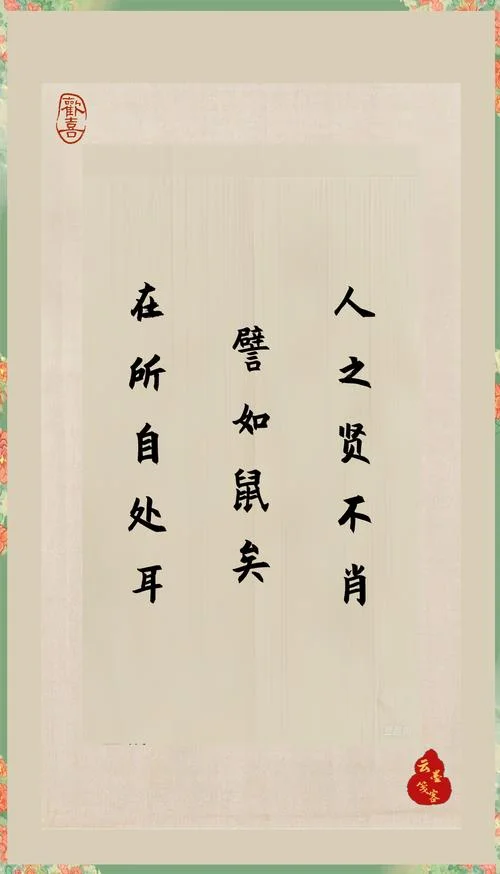 歡喜
人之贤不肖
譬如鼠矣
在所自处耳
云墨
笺客